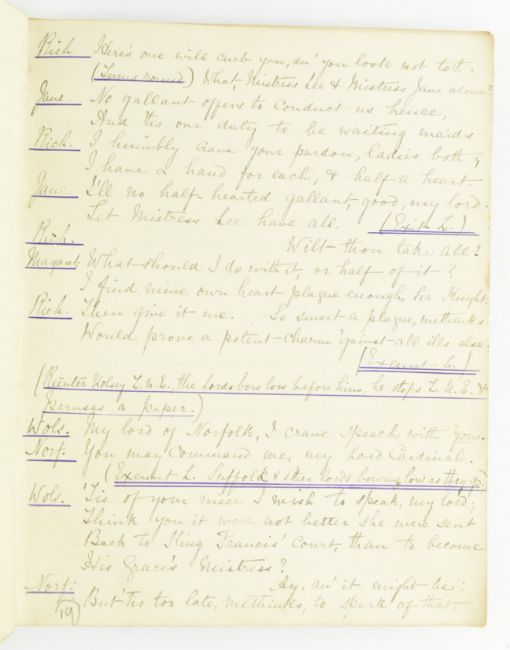 Rich Here's one will curb you, an' you look not to't.
(Turns round) What, Mistress Lee & Mistress Jane alone?
Jane. No gallant offers to conduct us hence,
And 'tis our duty to be waiting maids
Rich. I humbly crave your pardon, ladies both,
I have a hand for each, & half a heart.
Jane. I'll no half-hearted gallant, good, my lord.
Let Mistress Lee have all. (Exit L.)
Rich. Wilt thou take all?
Margaret What should I do with it, or half of it?
I find mine own heart plague enough, Sir Knight.
Rich. Then give it me. So sweet a plague, methinks
Would prove a potent charm 'gainst all ills else.
(Exeunt L.)
(Reënter Wolsey L.U.E., the lords bow low before him, he stops L.U.E. &
peruses a paper.)
Wols. My lord of Norfolk, I crave speech with you.
Norf. You may command me, my Lord Cardinal.
(Exeunt L. Suffolk & other lords bowing low as they go)
Wols. 'Tis of your niece I wish to speak, my lord;
Think you it were not better she were sent
Back to King Francis' Court, than to become
His Grace's Mistress?
Norf. Ay, an' it might be;
But 'tis too late, methinks, to speak of that.
19)